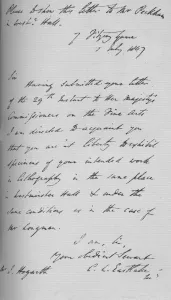 Please to show this letter to Mr
Hall.
7 Fitzroy Square
1 July 1847
Sir
Having submitted your letter
of the 29th Instant to Her Majesty's
Commissioners on the Fine Arts
I am directed to acquaint you
that you are at liberty to exhibit
specimens of your intended work
in Lithography in the same place
in Westminster Hall & under the
same conditions as in the case of
Mr Longman.
I am, Sir,
Your obedient Servant
C. L. Eastlake
Mr J. Hogarth